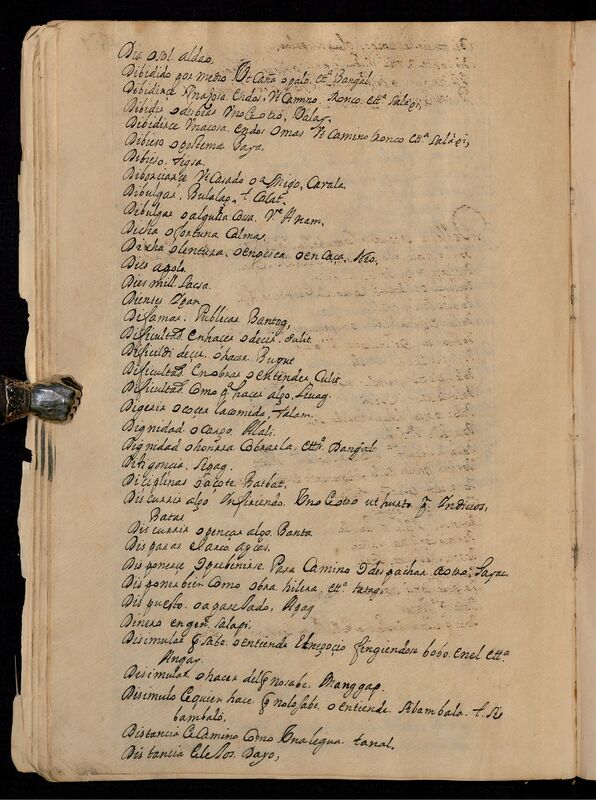 Dia o sol. aldao.
Dibidido por medio Ut caña o palo. ett.ª Bangal.
Dibidirce en dos, Ut Camino, tronco ett.ª Salapi,
Dibidir Uno de otro, Palay,
Dibidirce Una cosa. en dos o mas Ut Camino tronco ett.ª Salapi,
Dibieso o postema Baya.
Dibieso. tigsa.
Diborciarce Ut Casado o amigo, Cavala.
Dibulgar, Bulalag, t. Calat.
Dibulgar o alguna Cosa. V.e
Dicha o fortuna Calma.
Dicha o Ventura, en pesca. o en Caça, Neo,
Dies apolo.
Dies mill. Lacsa.
Dientes Ipan
Difamar. Publicar Bantog,
Dificultad. En hacer o decir. Sulit
Dificil di decir. o hacer.
Dificultad En obrar o entender Culit
Dificultad. Como q.e hacer algo,
Digerir o cocer la comida, Talam.
Dignidad o cargo. Alali.
Dignidad o honrra Cobrarla. ett.ª Dangal
Diligencia, Sipag.
Diciplinas o açote, Batbat,
Discurrir algo infiriendo. Uno de otro ut hurto. Indicios,
Batas
Discurrir o pençar algo. Banta
Disparar el arco
Disponerce o prebenirse. Para Camino o despachar a otro,
Disponer bien Como obra, hilera, ett.ª tatag,
Dispuesto. o aparejado, Agag
Dinero en gen. salapi.
Disimular q. sabe. o entiende El negocio fingiendose bobo. en el ett.ª
Angas.
Disimular o hacer del q. no sabe. Manggap.
Disimulo de quien hace. q. no lo sabe. o entiende. Abambalo. t. Si
bambalo,
Distancia de Camino Como Una legua. tanal.
Distancia de lejos. Dayo,